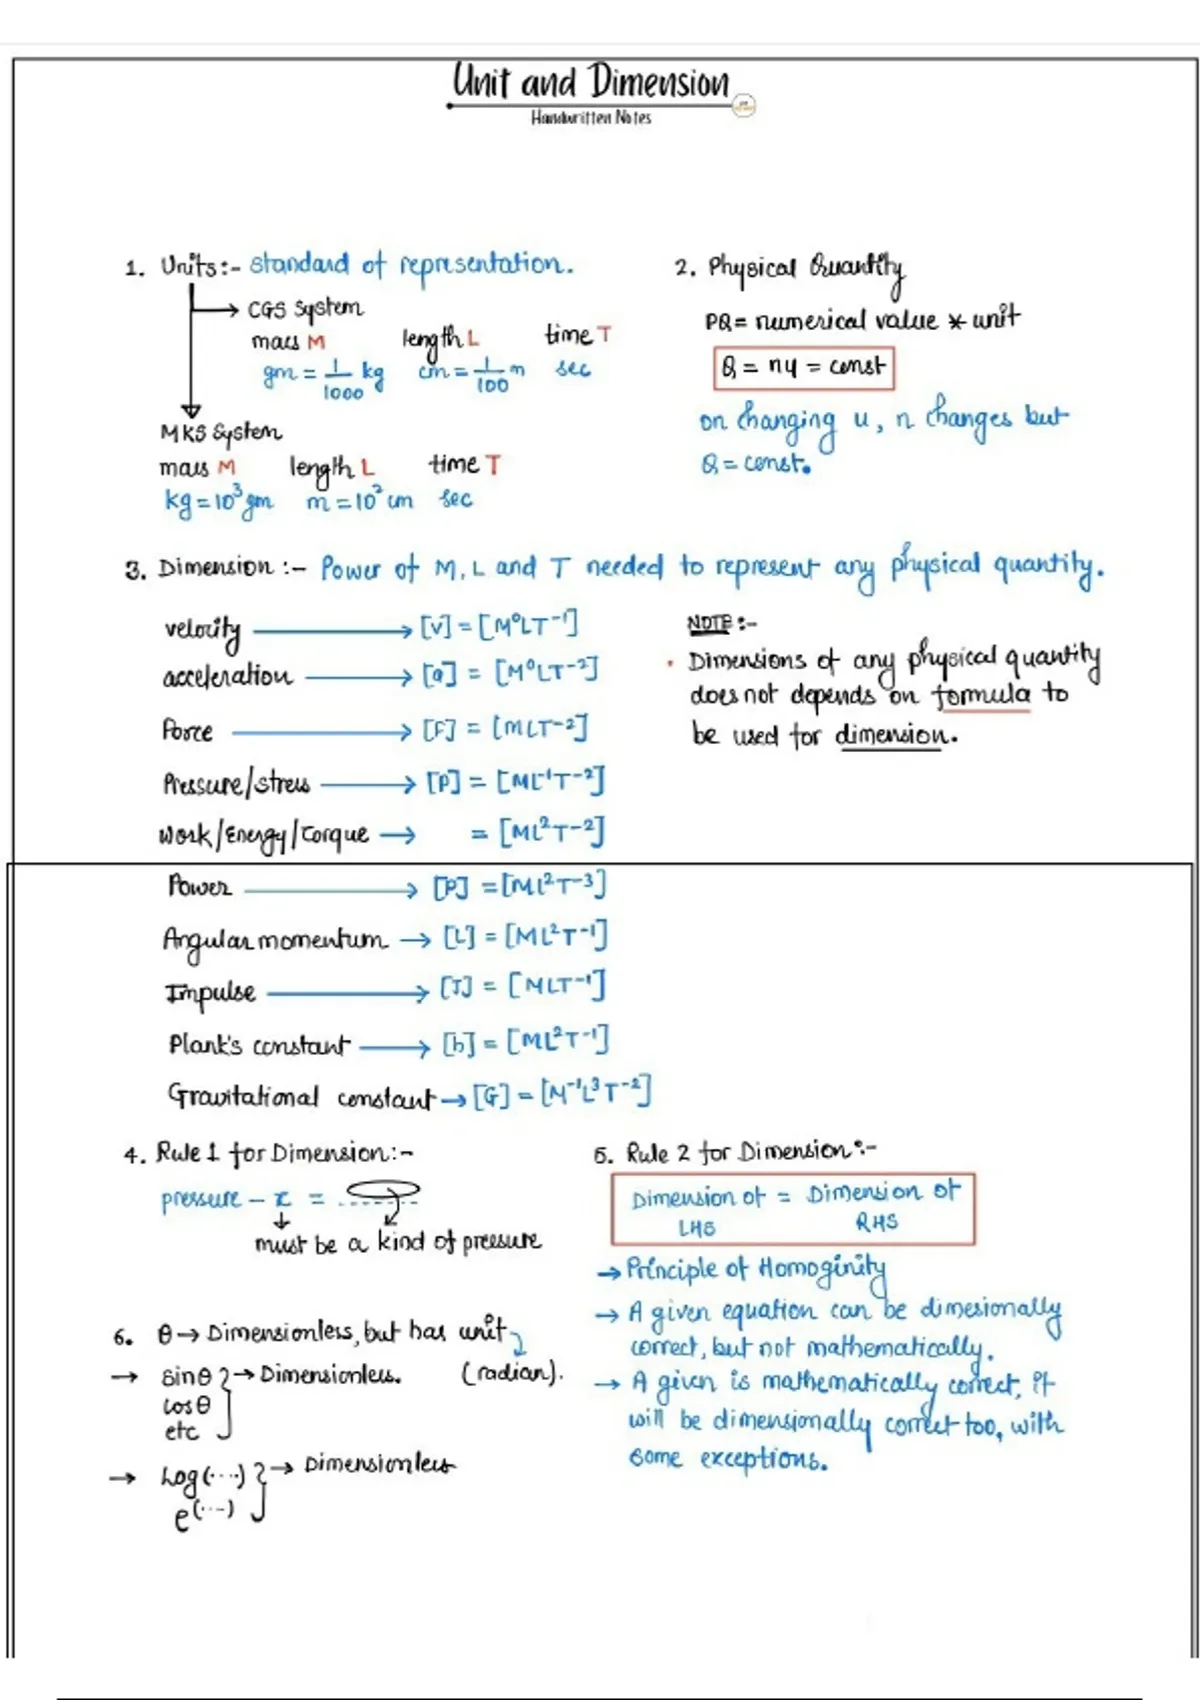 Unit and Dimension
Handwritten Notes
1. Units:- standard of representation.
→ CGS System
mass M length L time T
gm = 1/1000 kg cm = 1/100 m sec
MKS System
mass M length L time T
kg = 10³ gm m = 10² cm sec
2. Physical Quantity
PQ = numerical value * unit
Q = nu = const
on changing u, n changes but
Q = const.
3. Dimension :- Power of M, L and T needed to represent any physical quantity.
velocity → [V] = [M⁰LT⁻¹]
acceleration → [a] = [M⁰LT⁻²]
Force → [F] = [MLT⁻²]
Pressure/stress → [P] = [ML⁻¹T⁻²]
Work/Energy/Torque → = [ML²T⁻²]
Power → [P] = [ML²T⁻³]
Angular momentum → [L] = [ML²T⁻¹]
Impulse → [I] = [MLT⁻¹]
Plank's constant → [h] = [ML²T⁻¹]
Gravitational constant → [G] = [M⁻¹L³T⁻²]
NOTE :-
• Dimensions of any physical quantity
does not depends on formula to
be used for dimension.
4. Rule 1 for Dimension:-
pressure - x =
must be a kind of pressure
5. Rule 2 for Dimension:-
Dimension of = Dimension of
LHS RHS
→ Principle of Homoginity
→ A given equation can be dimesionally
correct, but not mathematically.
→ A given is mathematically correct, it
will be dimensionally correct too, with
some exceptions.
6. θ → Dimensionless, but has unit
(radian).
→ sinθ } → Dimensionless.
cosθ
etc
→ Log(....) } → Dimensionless
e^(...)